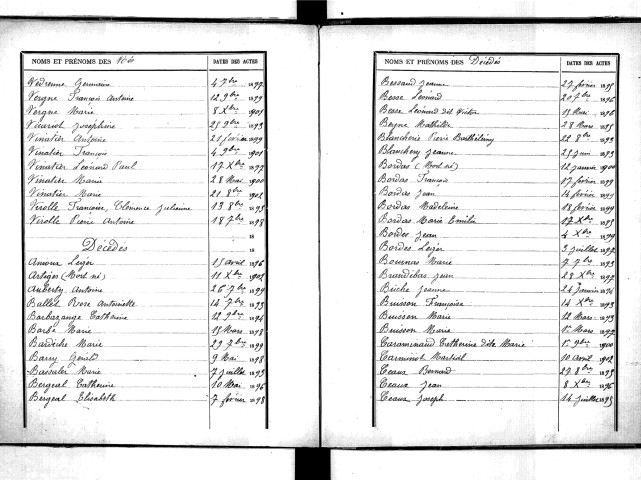 NOMS ET PRÉNOMS DES Nés DATES DES ACTES
Vedrenne Germaine 4 7bre 1899
Vergne François Antoine 12 9bre 1899
Vergne Marie 8 Xbre 1901
Joséphine 25 9bre 1893
Vinatier Antoine 21 février 1899
Vinatier François 4 9bre 1901
Vinatier Léonard Paul 17 Xbre 1899
Vinatier Marie 28 Mai 1900
Vinatier Marie 21 8bre 1902
Virolle Françoise, Clémence Julienne 13 8bre 1895
Virolle Pierre Antoine 18 7bre 1898
18
Décédés 18
Amour Léger 15 avril 1896
Artiges (Mort né) 11 Xbre
Auberty Antoine 26 7bre 1899
Ballet Rose Antoinette 14 7bre 1893
Barbazange Catherine 12 9bre 1894
Marie 15 Mars 1898
Bardèche Marie 29 7bre 1899
Barry 9 Mai 1898
Marie 7 juillet 1893
Bergeal Catherine 10 Mai 1896
Bergeal Elisabeth 7 février 1898
NOMS ET PRÉNOMS DES Décédés DATES DES ACTES
Bessaud Jeanne 27 février 1895
Besse Léonard 20 7bre 1896
Besse Léonard dit Victor 15 Mai 1896
Mathilde 28 Mars 1895
Blancherie Marie Barthélemy 22 8bre 1893
Blanchery Jeanne 25 juin 1893
Bordas (Mort né) 12 janvier 1900
Bordas François 17 février 1899
Bordas Jean 14 février
Bordas Madeleine 18 février 1899
Bordas Marie Emilie 17 Xbre 1895
Bordes Jean 4 Xbre 1899
Bordes Léger 3 juillet 1892
Marie 7 7bre 1893
Jean 28 Xbre 1892
Jeanne 24 Janvier 1894
Buisson Françoise 14 Xbre 1893
Buisson Marie 12 Mars 1893
Buisson Marie 15 Mars 1897
Catherine dite Marie 15 9bre 1900
Martial 10 avril 1902
Ceaux Bernard 29 8bre 1895
Ceaux Jean 8 Xbre 1896
Ceaux Joseph 14 juillet 1895